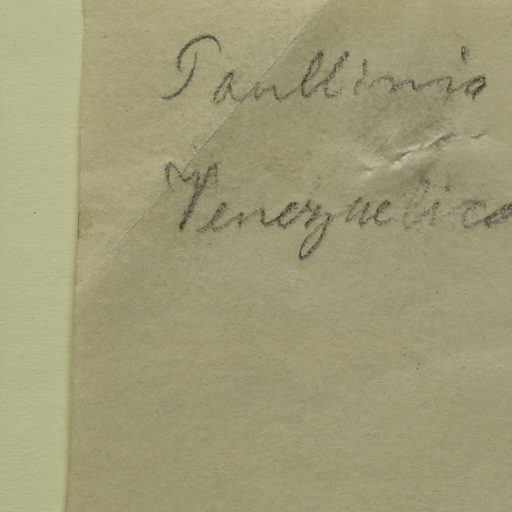 Paullinia
Venezuelica